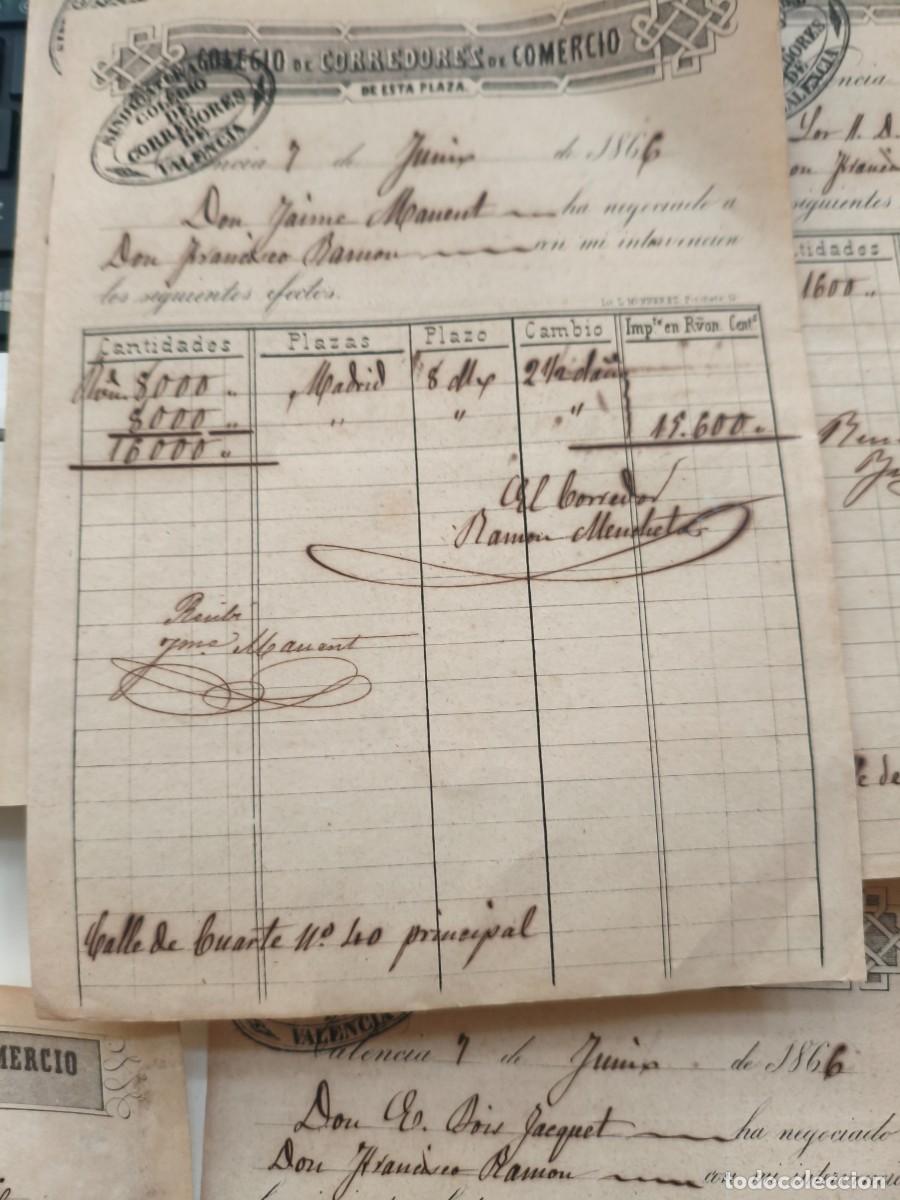 COLEGIO DE CORREDORES DE COMERCIO
DE ESTA PLAZA.
SINDICATURA
COLEGIO
DE
CORREDORES
DE
VALENCIA
encia 7 de Junio de 1866
Don Jaime Manent ha negociado a
Don Francisco Ramon con mi intervencion
los siguientes efectos.
Cantidades Plazas Plazo Cambio Impte en Rvon. Cents
Rvn. 8000 " Madrid 8 d/v 2 1/2 daño
8000 " " " " 15.600 "
16000 "
El Corredor
Ramon Mencheta
Recibi
Jme Manent
Calle de Cuarte No. 40 principal
CORREDORES
DE
VALENCIA
encia
Sor D. D.
on Francis
siguientes
tidades
1600 "
MERCIO
VALENCIA
Valencia 7 de Junio de 1866
Don E. Bois Jacquet ha negociado
Don Francisco Ramon con mi interven
todocoleccion